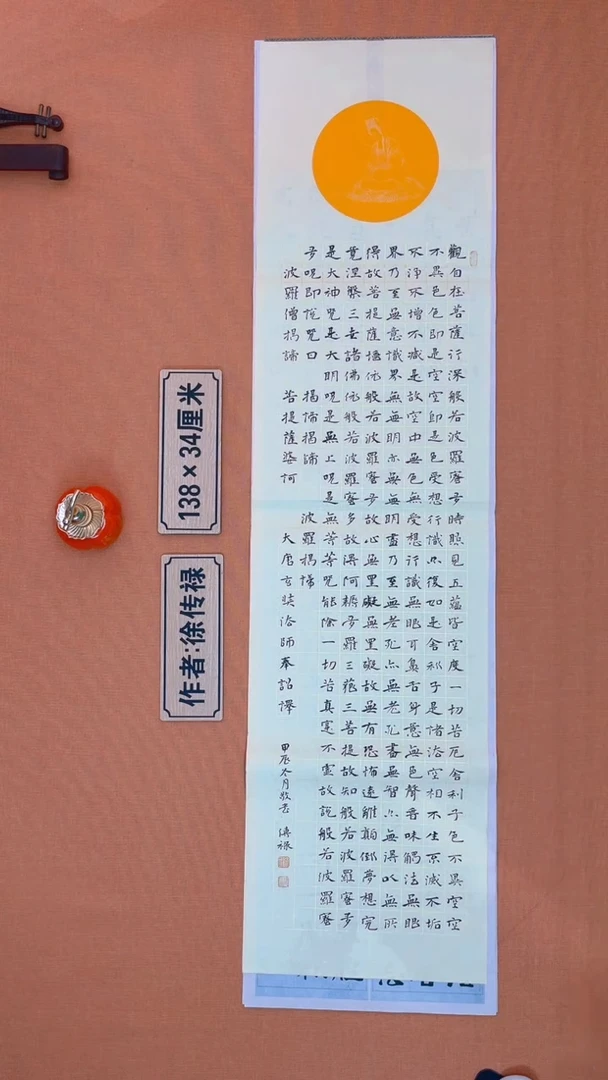 觀自在菩薩行深般若波羅蜜多時照見五蘊皆空度一切苦厄舍利子色不異空空
不異色色即是空空即是色受想行識亦復如是舍利子是諸法空相不生不滅不垢
不淨不增不減是故空中無色無受想行識無眼耳鼻舌身意無色聲香味觸法無眼
界乃至無意識界無無明亦無無明盡乃至無老死亦無老死盡無智亦無得以無所
得故菩提薩埵依般若波羅蜜多故心無罣礙無罣礙故無有恐怖遠離顛倒夢想究
竟涅槃三世諸佛依般若波羅蜜多故得阿耨多羅三藐三菩提故知般若波羅蜜多
是大神呪是大明呪是無上呪是無等等呪能除一切苦真實不虛故說般若波羅蜜
多呪即說呪曰 揭諦揭諦 波羅揭諦
波羅僧揭諦 菩提薩婆訶 大唐玄奘法師奉詔譯
甲辰冬月敬書 傳祿
138×34厘米
作者:徐传禄